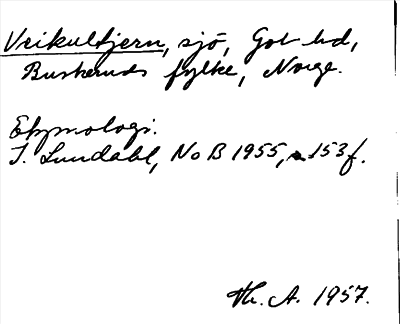 Veikultjern, sjö, Gol hd,
Buskeruds fylke, Norge.
Etymologi.
I. Lundahl, NoB 1955, s. 153f.
Th. A. 1957.